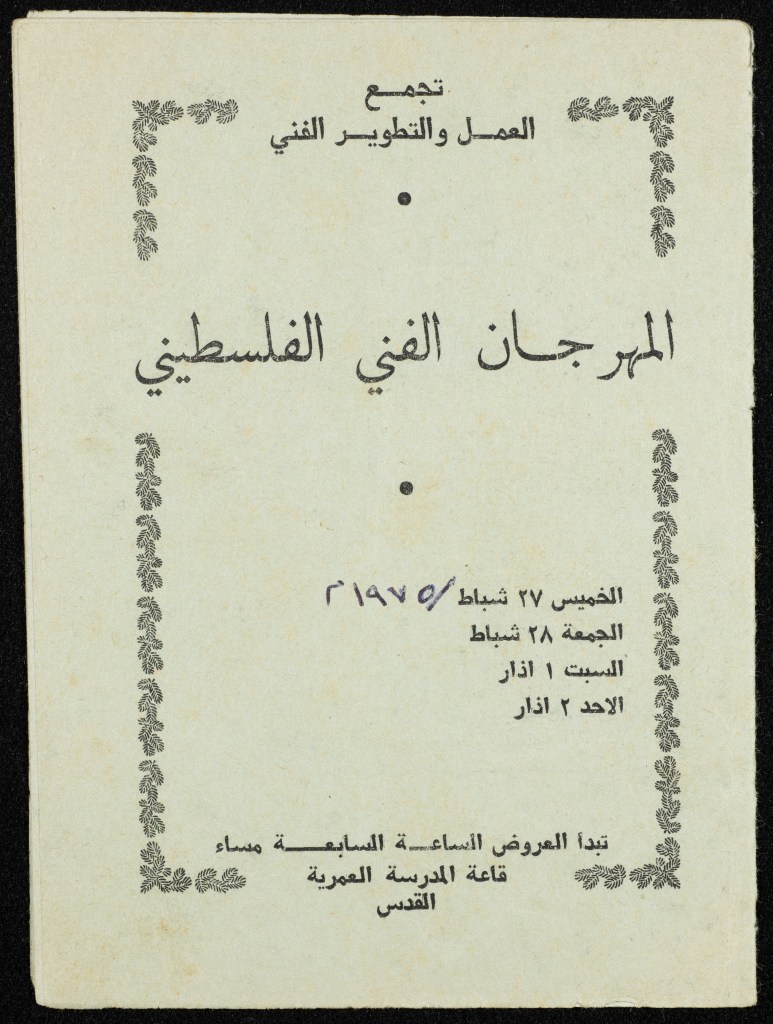 تجمع
العمل والتطوير الفني
المهرجان الفني الفلسطيني
الخميس ٢٧ شباط /١٩٧٥
الجمعة ٢٨ شباط
السبت ١ اذار
الاحد ٢ اذار
تبدأ العروض الساعة السابعة مساء
قاعة المدرسة العمرية
القدس